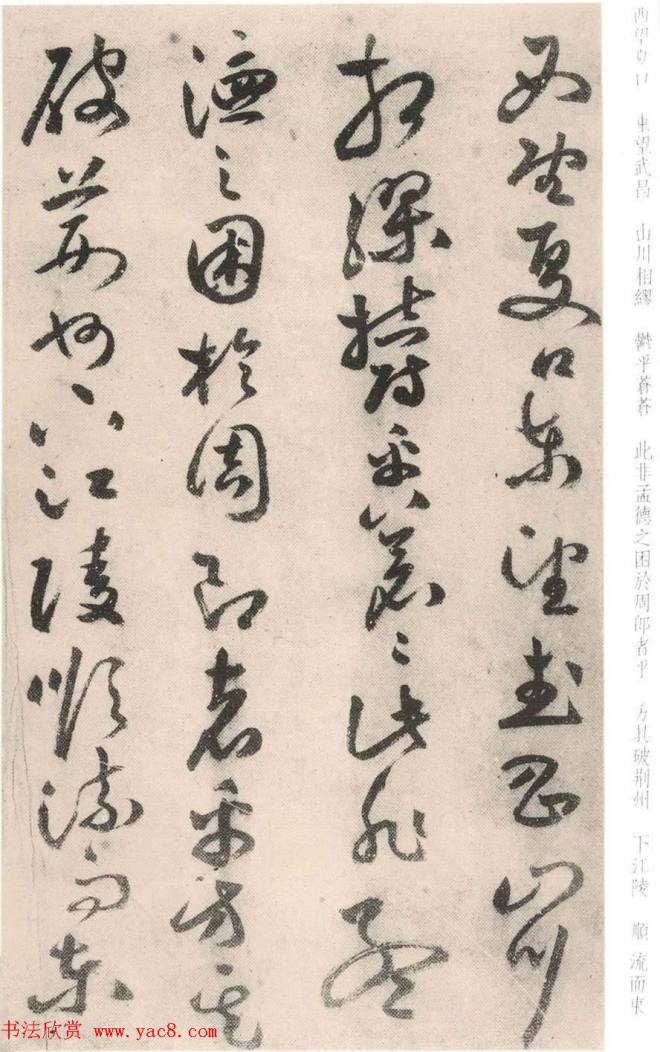 西望夏口東望武昌山川
相繆鬱乎蒼々此非孟
德之困於周郎者乎方其
破荊州下江陵順流而東
西望夏口 東望武昌 山川相繆 鬱乎蒼蒼 此非孟德之困於周郎者乎 方其破荆州 下江陵 順流而東
书法欣赏 www.yac8.com